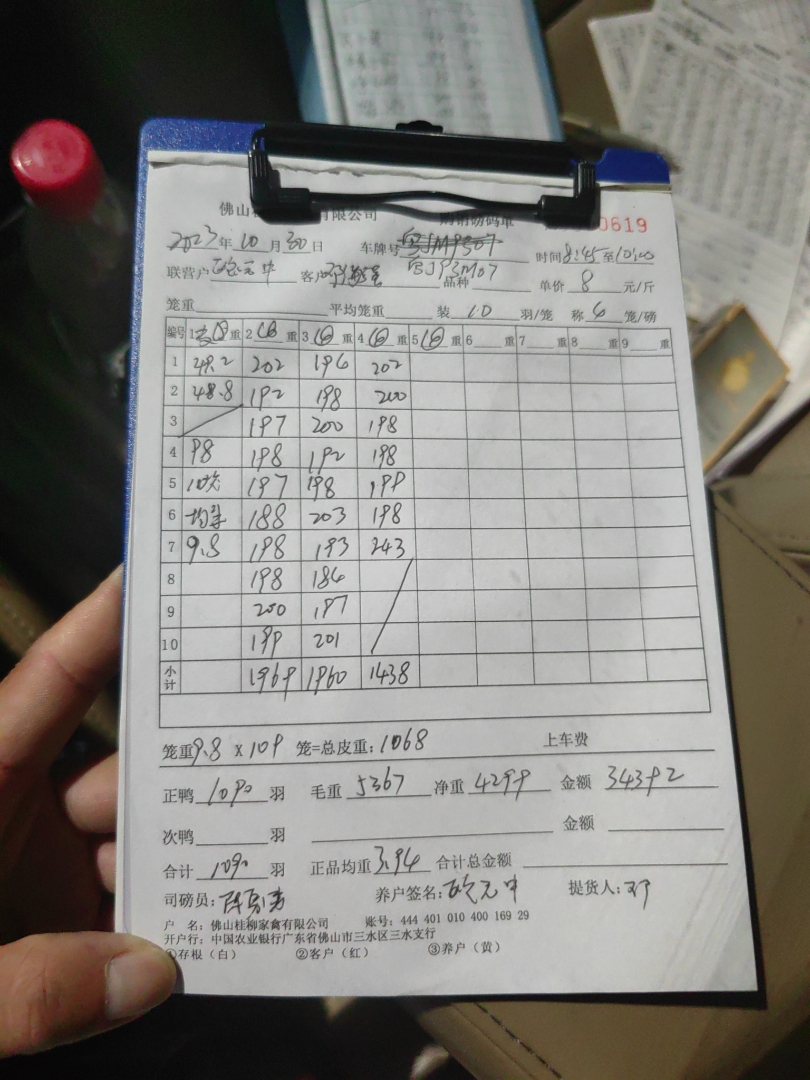 佛山桂 有限公司 购销磅码单 0619
2023年10月30日 车牌号 粤JMP307 时间8:45至10:00
联营户 客户 粤JP3M07 品种 单价 8 元/斤
笼重 平均笼重 装 10 羽/笼 称 6 笼/磅
编号 1 重 2 ⑥ 重 3 ⑥ 重 4 ⑥ 重 5 ⑥ 重 6 重 7 重 8 重 9 重
1 49.2 202 196 202
2 48.8 192 198 200
3 197 200 198
4 98 198 192 198
5 10笼 197 198 199
6 均重 188 203 198
7 9.8 198 193 243
8 198 186
9 200 197
10 199 201
小计 1969 1960 1438
笼重9.8 x 109 笼=总皮重:1068 上车费
正鸭 1090 羽 毛重 5367 净重 4299 金额 34392
次鸭 羽 金额
合计 1090 羽 正品均重 3.94 合计总金额
司磅员: 养户签名: 提货人:邓
户 名:佛山桂柳家禽有限公司 账号:444 401 010 400 169 29
开户行:中国农业银行广东省佛山市三水区三水支行
①存根(白) ②客户(红) ③养户(黄)